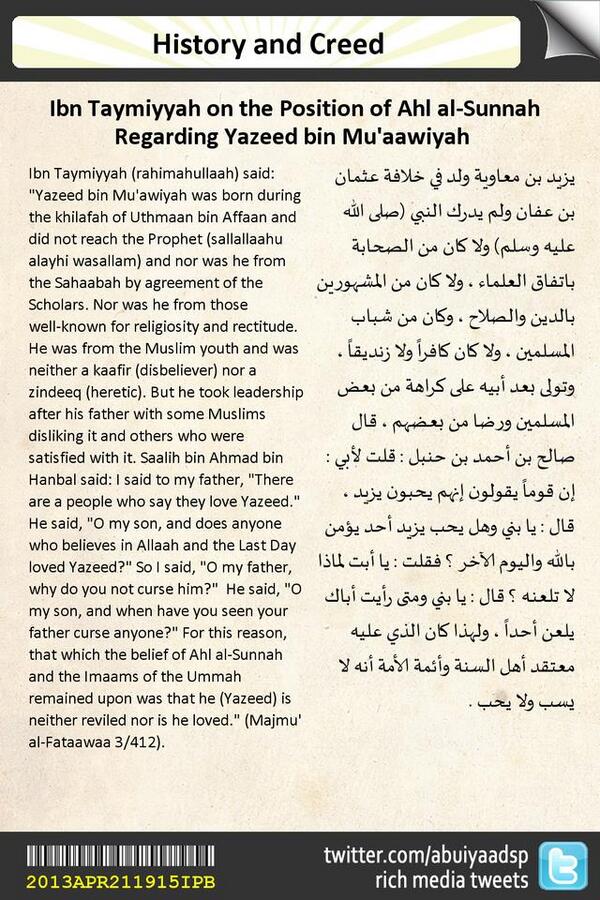 History and Creed
Ibn Taymiyyah on the Position of Ahl al-Sunnah
Regarding Yazeed bin Mu'aawiyah
Ibn Taymiyyah (rahimahullaah) said:
"Yazeed bin Mu'awiyah was born during
the khilafah of Uthmaan bin Affaan and
did not reach the Prophet (sallallaahu
alayhi wasallam) and nor was he from
the Sahaabah by agreement of the
Scholars. Nor was he from those
well-known for religiosity and rectitude.
He was from the Muslim youth and was
neither a kaafir (disbeliever) nor a
zindeeq (heretic). But he took leadership
after his father with some Muslims
disliking it and others who were
satisfied with it. Saalih bin Ahmad bin
Hanbal said: I said to my father, "There
are a people who say they love Yazeed."
He said, "O my son, and does anyone
who believes in Allaah and the Last Day
loved Yazeed?" So I said, "O my father,
why do you not curse him?"  He said, "O
my son, and when have you seen your
father curse anyone?" For this reason,
that which the belief of Ahl al-Sunnah
and the Imaams of the Ummah
remained upon was that he (Yazeed) is
neither reviled nor is he loved." (Majmu'
al-Fataawaa 3/412).
يزيد بن معاوية ولد في خلافة عثمان
بن عفان ولم يدرك النبي (صلى الله
عليه وسلم) ولا كان من الصحابة
باتفاق العلماء ، ولا كان من المشهورين
بالدين والصلاح ، وكان من شباب
المسلمين ، ولا كان كافراً ولا زنديقاً ،
وتولى بعد أبيه على كراهة من بعض
المسلمين ورضا من بعضهم ، قال
صالح بن أحمد بن حنبل : قلت لأبي :
إن قوماً يقولون إنهم يحبون يزيد ،
قال : يا بني وهل يحب يزيد أحد يؤمن
بالله واليوم الآخر ؟ فقلت : يا أبت لماذا
لا تلعنه ؟ قال : يا بني ومتى رأيت أباك
يلعن أحداً ، ولهذا كان الذي عليه
معتقد أهل السنة وأئمة الأمة أنه لا
يسب ولا يحب .
2013APR211915IPB
twitter.com/abuiyaadsp
rich media tweets